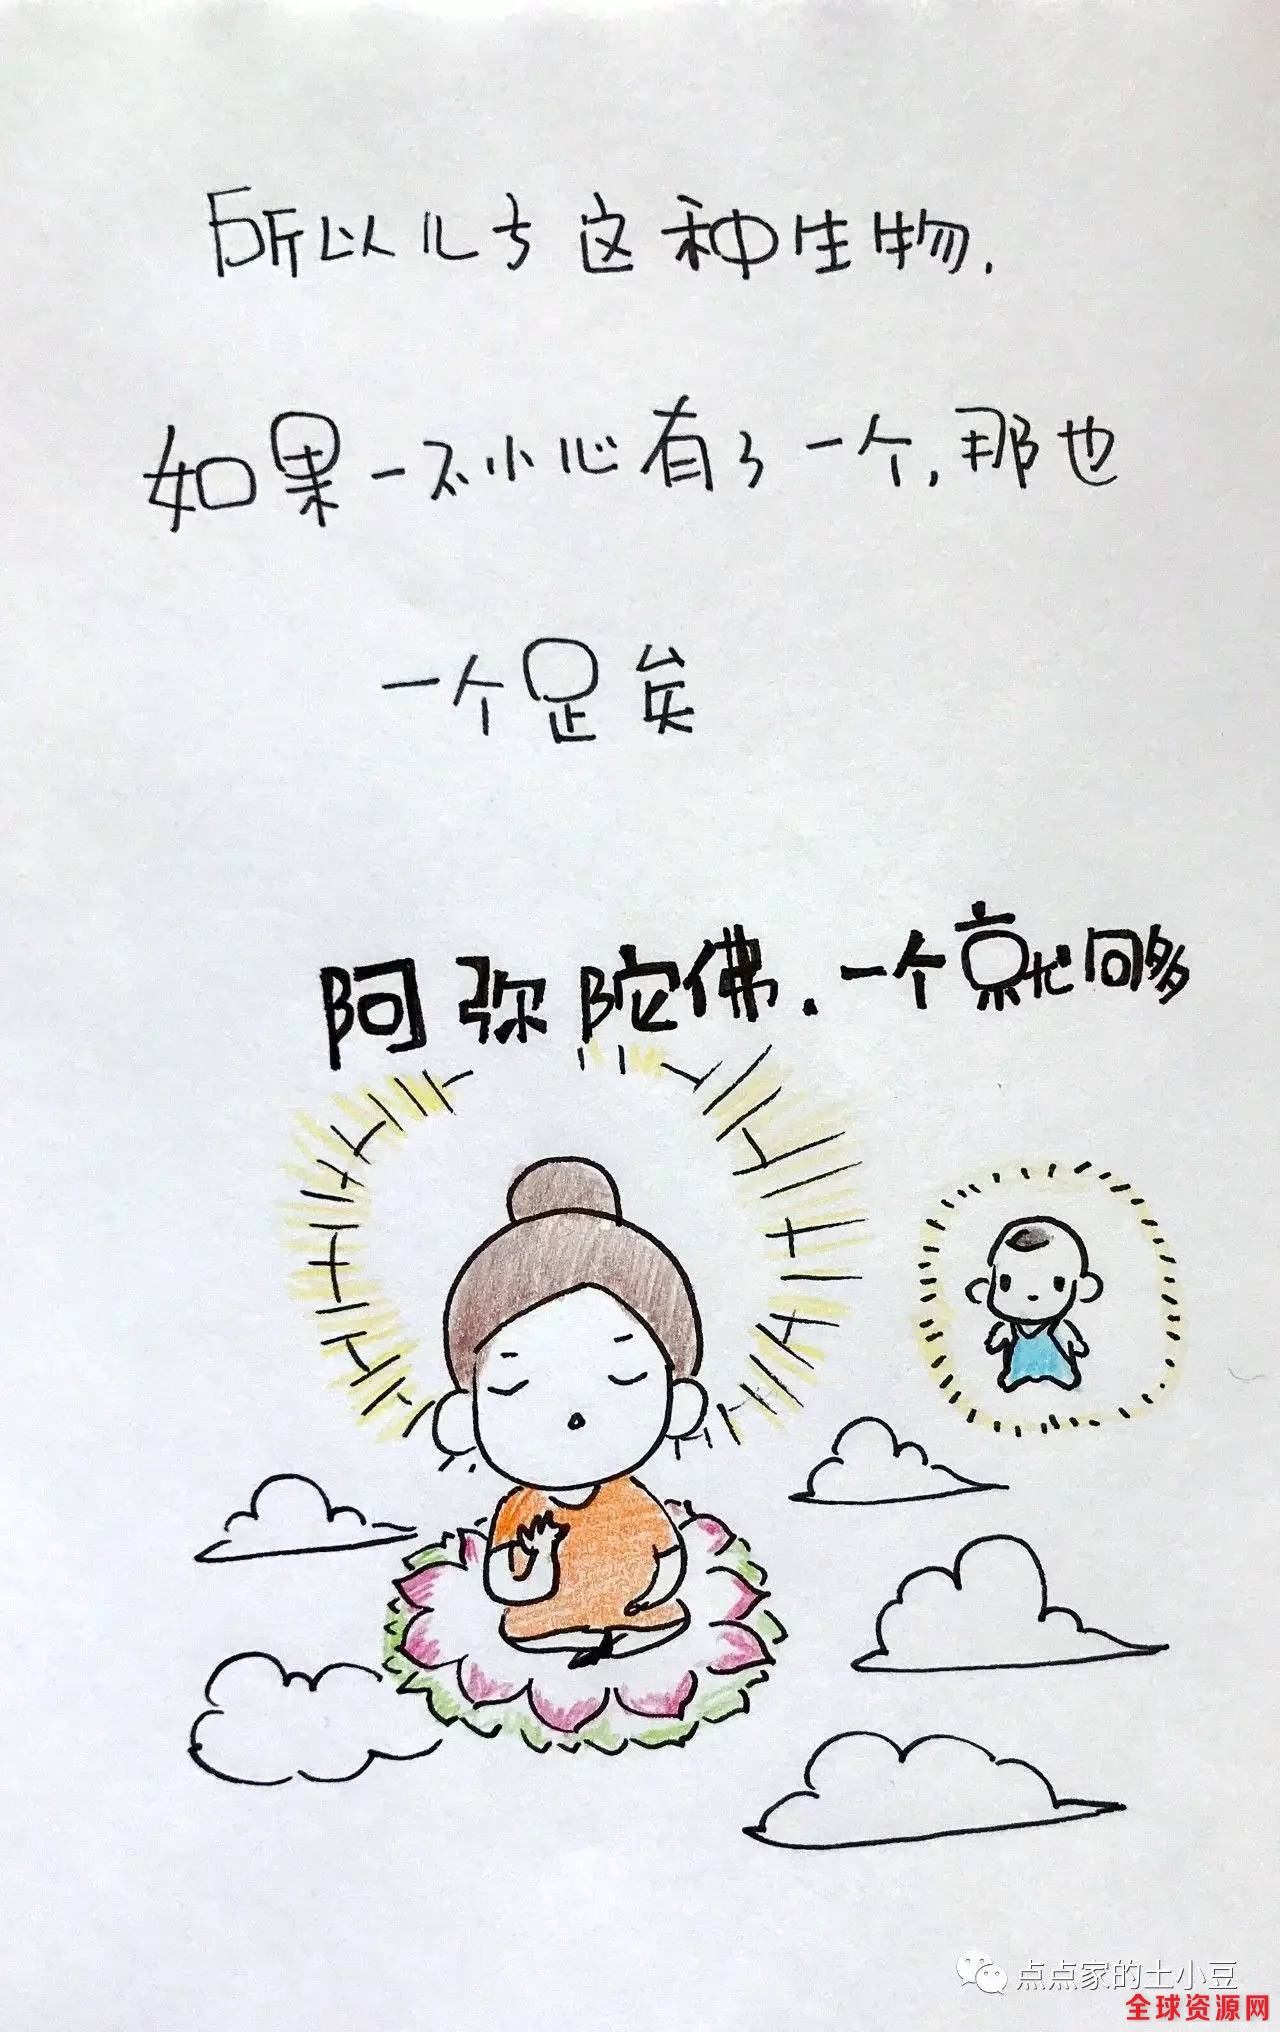 所以儿子这种生物.
如果一不小心有了一个,那也
一个足矣
阿弥陀佛.一个就够
点点家的土小豆
全球资源网